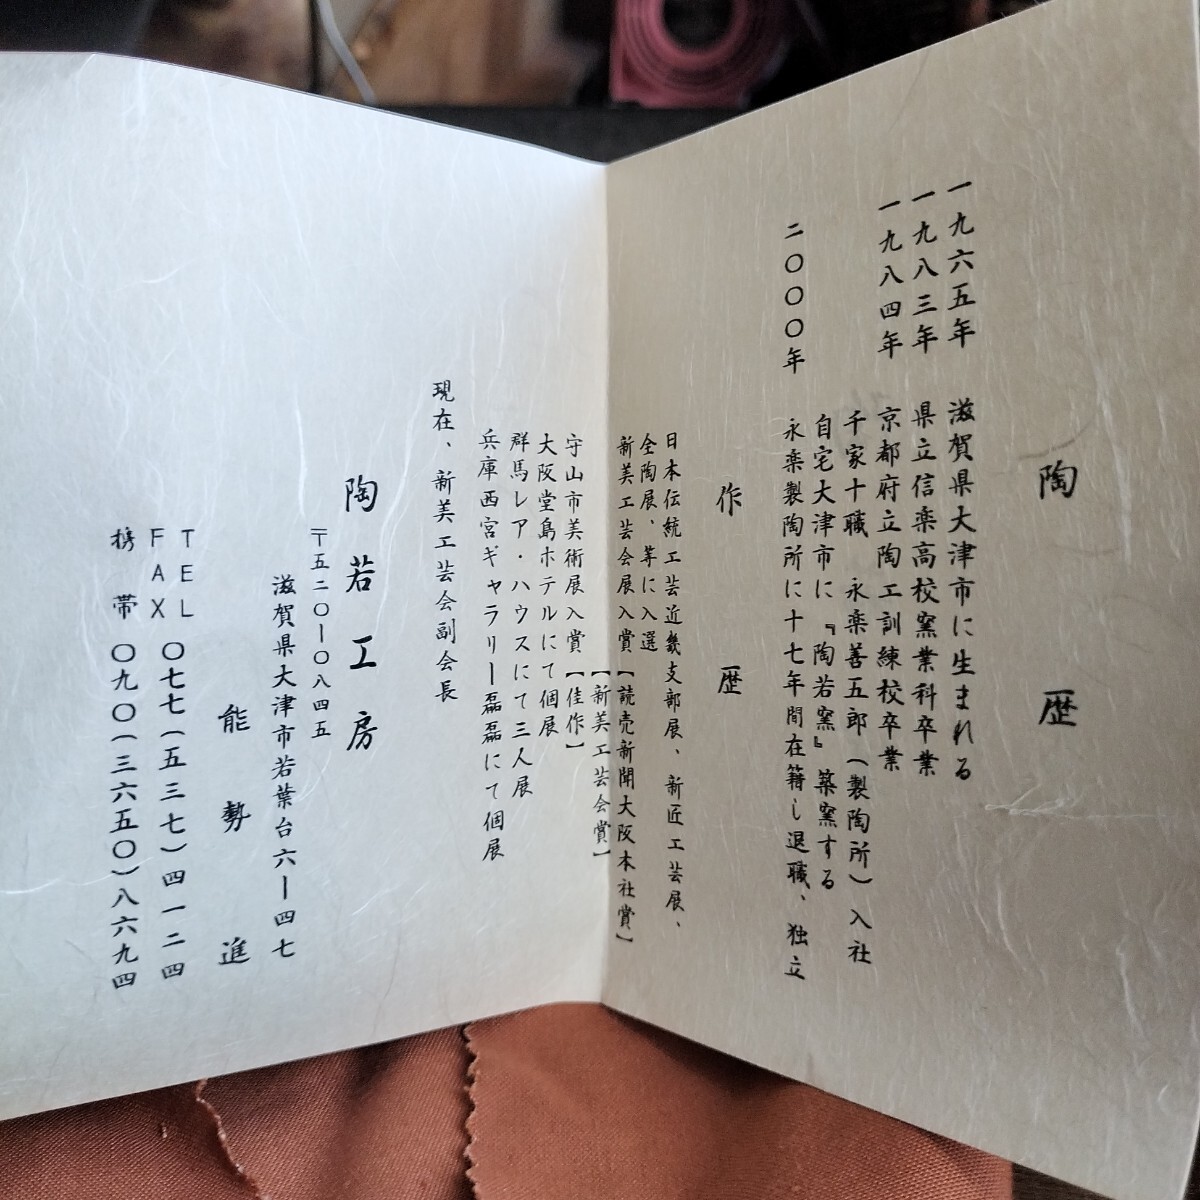 陶歴
一九六五年 滋賀県大津市に生まれる
一九八三年 県立信楽高校窯業科卒業
一九八四年 京都府立陶工訓練校卒業
千家十職 永楽善五郎(製陶所)入社
自宅大津市に『陶若窯』築窯する
二〇〇〇年 永楽製陶所に十七年間在籍し退職、独立
作歴
日本伝統工芸近畿支部展、新匠工芸展、
全陶展、等に入選
新美工芸会展入賞【読売新聞大阪本社賞】
【新美工芸会賞】
守山市美術展入賞【佳作】
大阪堂島ホテルにて個展
群馬レア・ハウスにて三人展
兵庫西宮ギャラリー磊磊にて個展
現在、新美工芸会副会長
陶若工房
〒五二〇ー〇八四五
滋賀県大津市若葉台六ー四七
能勢進
TEL
FAX 〇七七(五三七)四一二四
携帯 〇九〇(三六五〇)八六九四